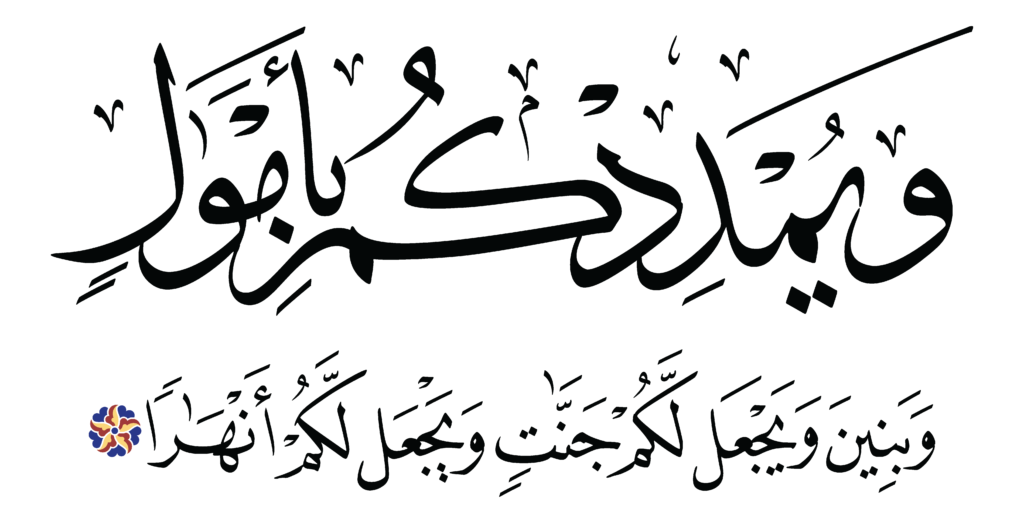 وَيُمْدِدْكُم بِأَمْوَٰلٍ
وَبَنِينَ وَيَجْعَل لَّكُمْ جَنَّٰتٍ وَيَجْعَل لَّكُمْ أَنْهَٰرًا